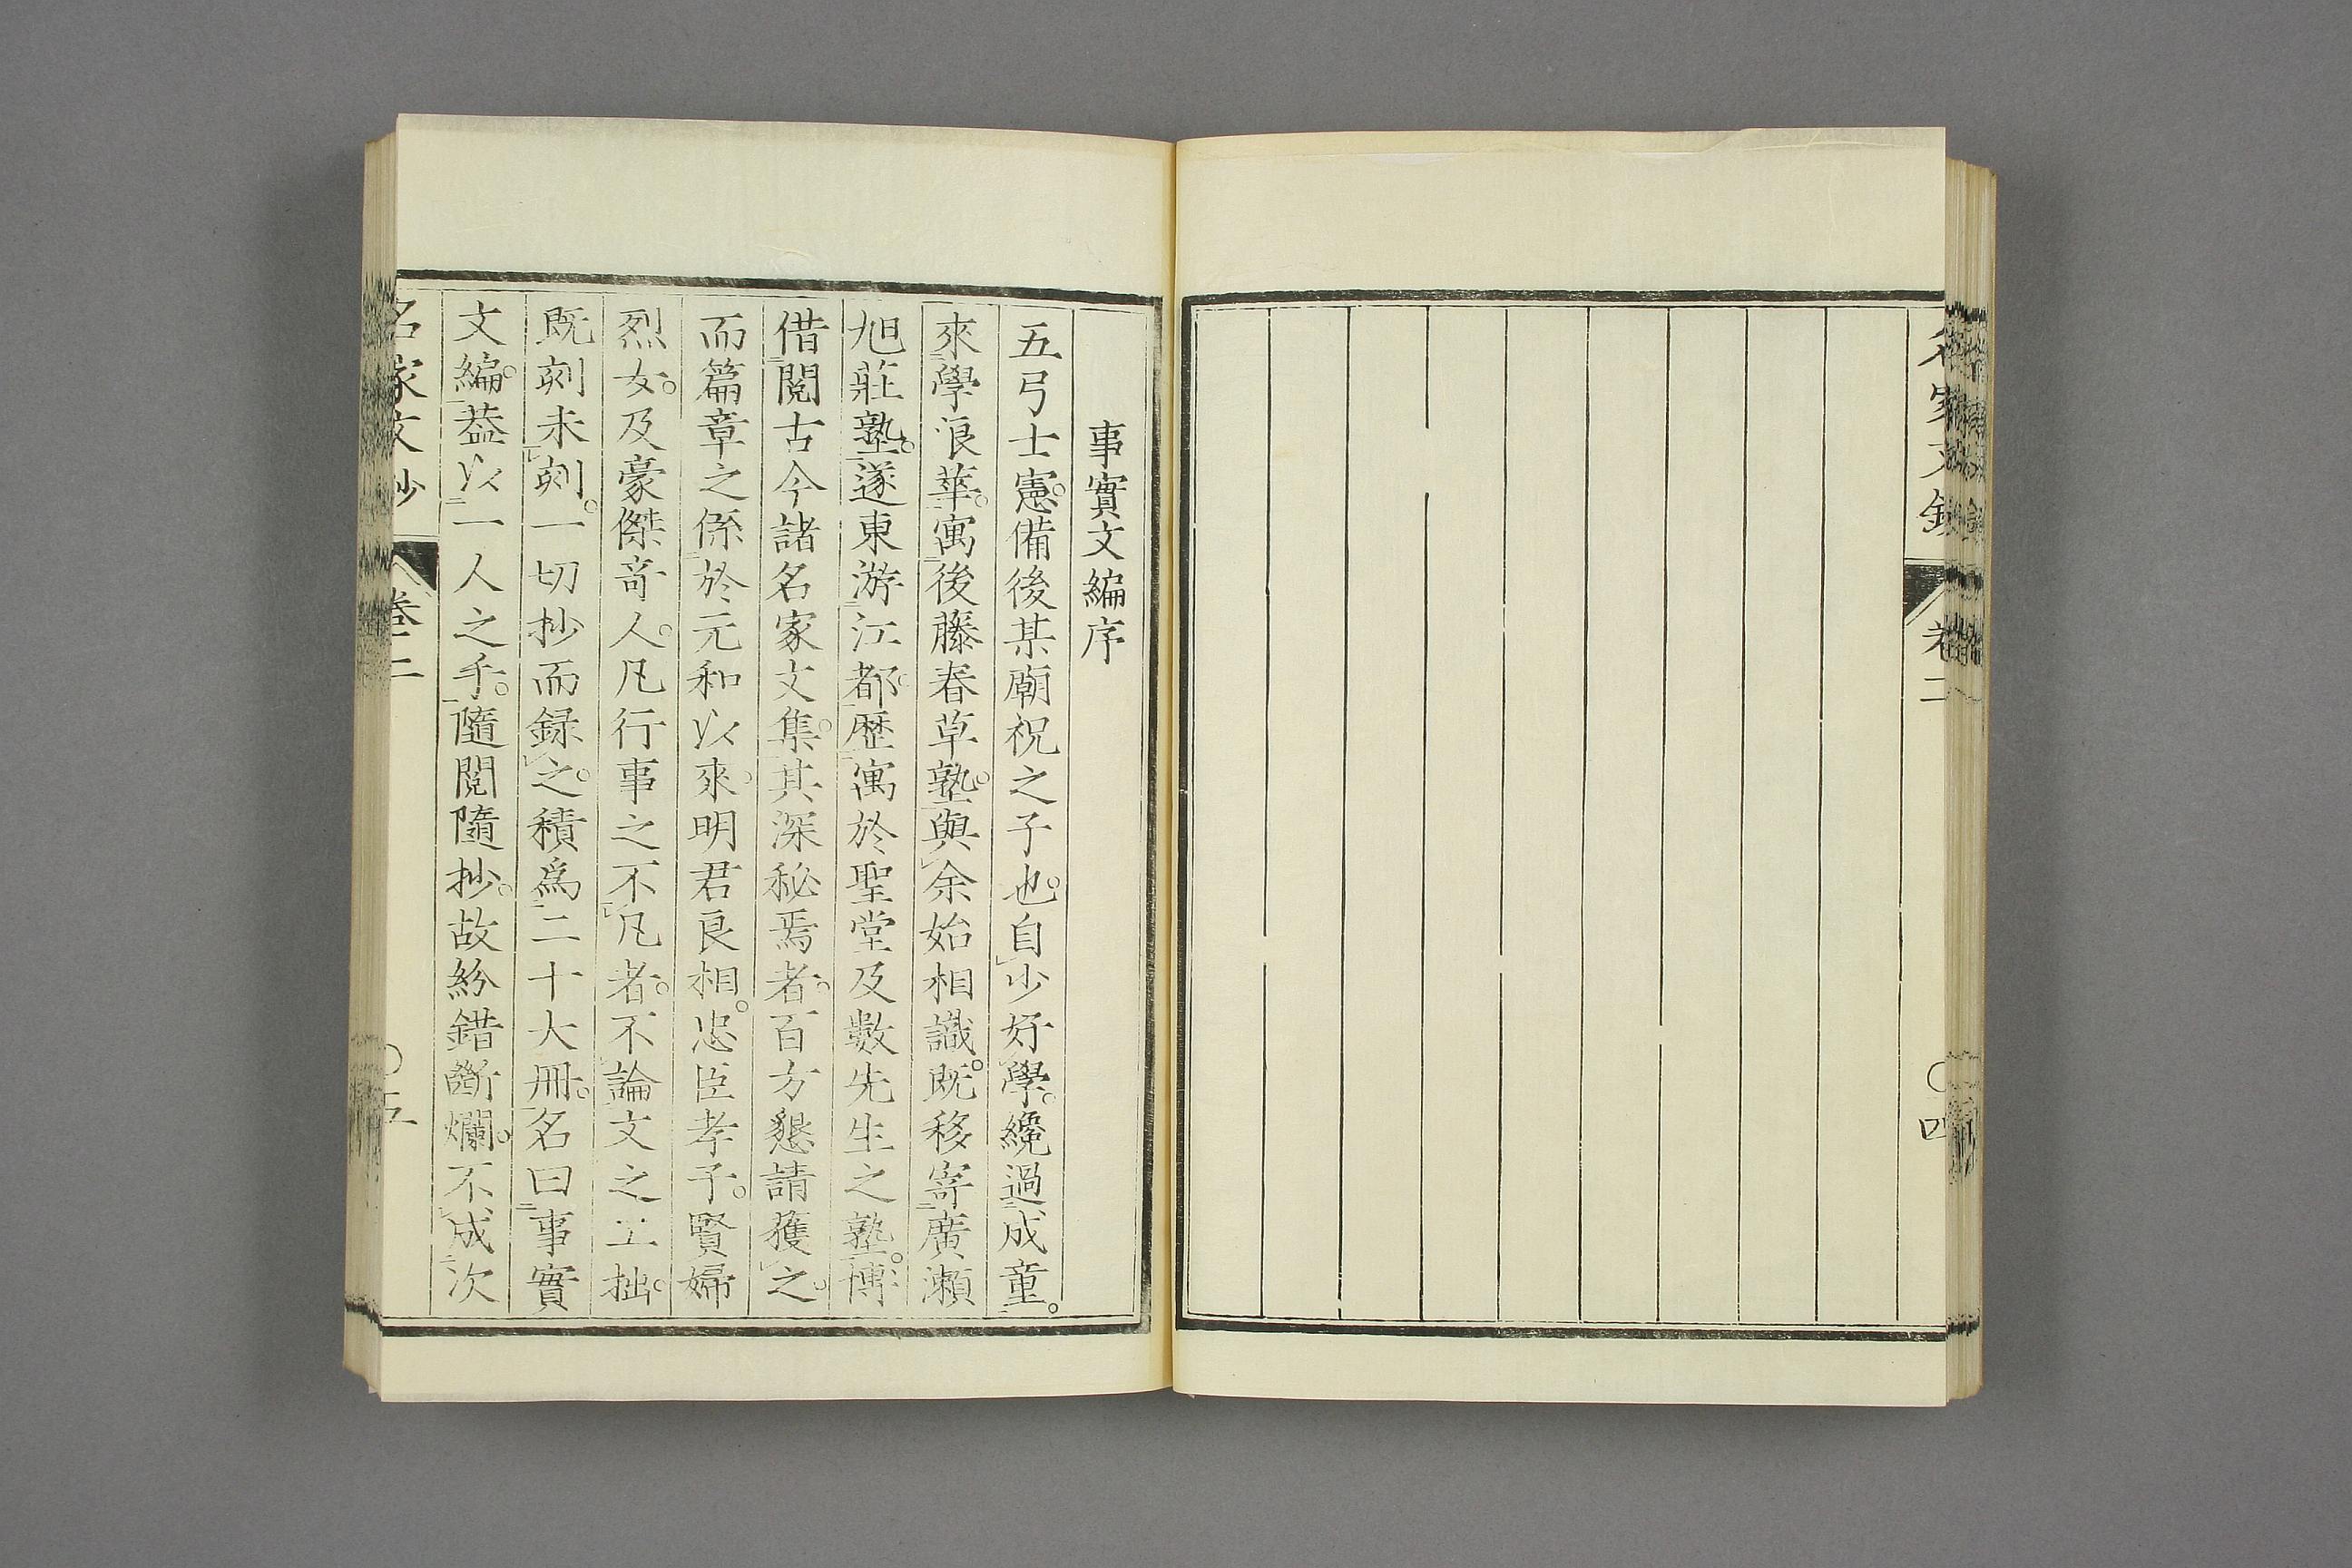 名家文鈔 卷二 〇四
事實文編序
五弓士憲。備後某廟祝之子也。自少好學。纔過成童。
來學浪華。寓後藤春草塾。與余始相識。既移寄廣瀬
旭莊塾。遂東游江都。歴寓於聖堂及數先生之塾。博
借閲古今諸名家文集。其深秘焉者。百方懇請獲之。
而篇章之係於元和以來。明君良相。忠臣孝子。賢婦
烈女。及豪傑竒人。凡行事之不凡者。不論文之工拙。
既刻未刻。一切抄而録之。積爲二十大冊。名曰事實
文編。葢以一人之手。隨閲隨抄。故紛錯斷爛。不成次
名家文鈔 卷二 〇五